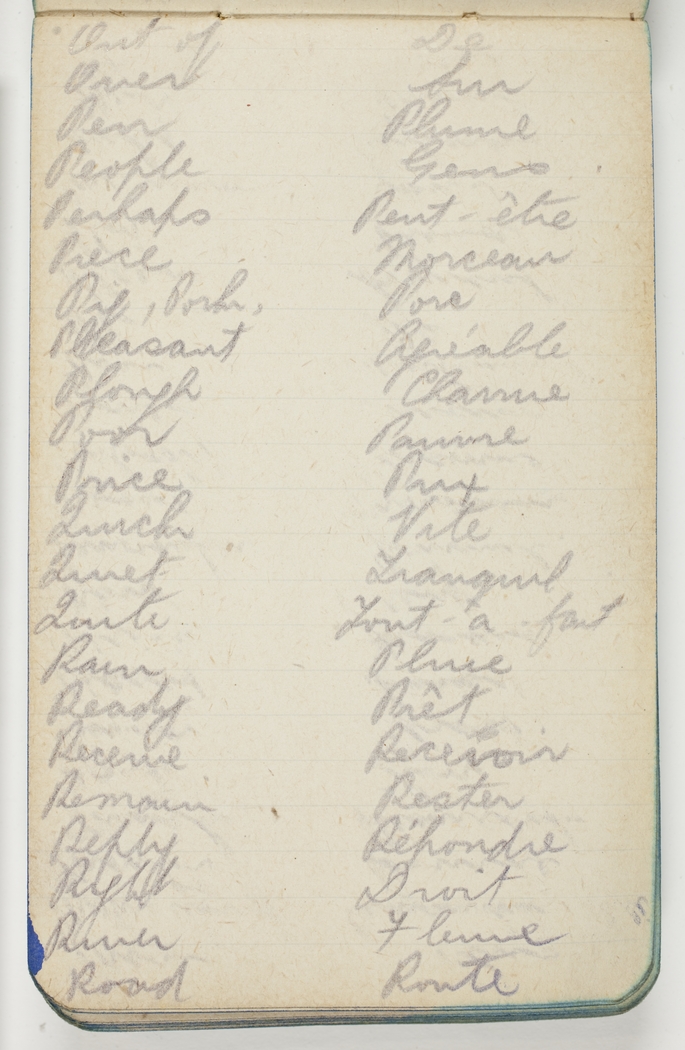 Out of De
Over Sur
Pen Plume
People Gens
Perhaps Peut-être
Piece Morceau
Pig, Pork, Porc
Pleasant Agréable
Plough Charrue
Poor Pauvre
Price Prix
Quick Vite
Quiet Tranquil
Quite Tout-à-fait
Rain Pluie
Ready Prêt
Receive Recevoir
Remain Rester
Reply Répondre
Right Droit
River Fleuve
Road Route